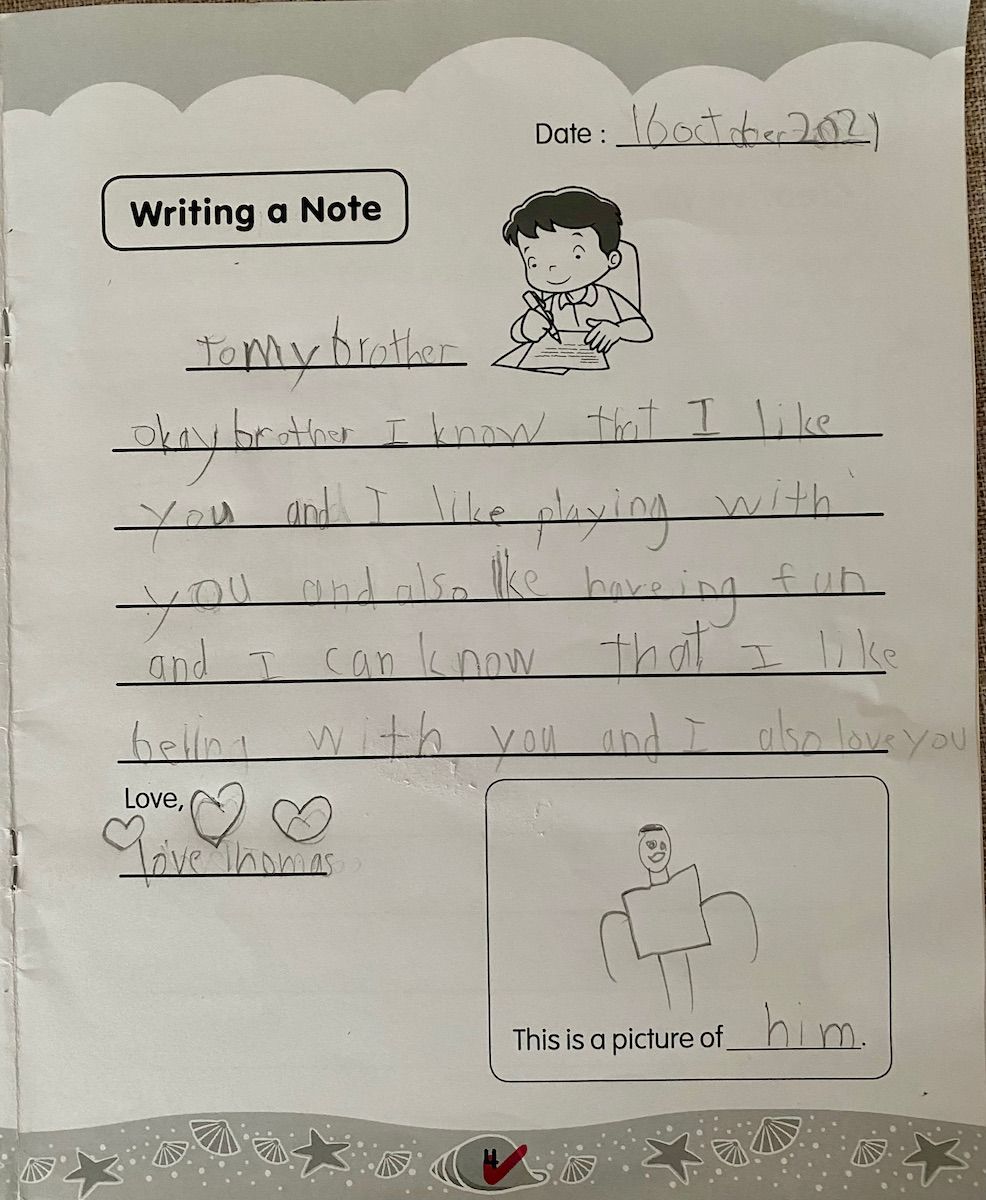 Date : 16 october 2021
Writing a Note
to my brother
okay brother I know that I like
you and I like playing with
you and also lke haveing fun
and I can know that I like
beling with you and I also love you
Love,
love Thomas
This is a picture of him.
4